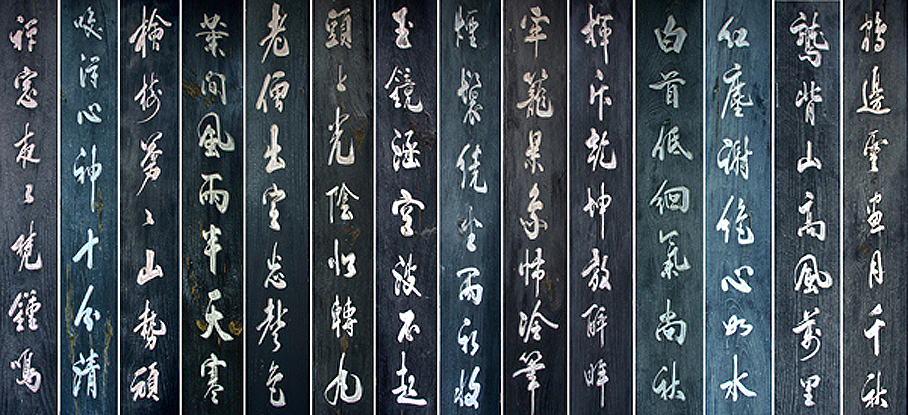 禪窓夜々梵鍾鳴
喚得心神十分淸
檜樹蒼々山勢頑
葉間風雨半天寒
老僧出定忘聲色
頭上光陰似轉丸
玉鏡涵空波不起
煙鬟繞坐雨初收
牢籠景象歸冷筆
揮斥乾坤放醉眸
白首低徊氣尙秋
紅塵謝絶心如水
鷲背山高風萬里
鶴邊雲盡月千秋